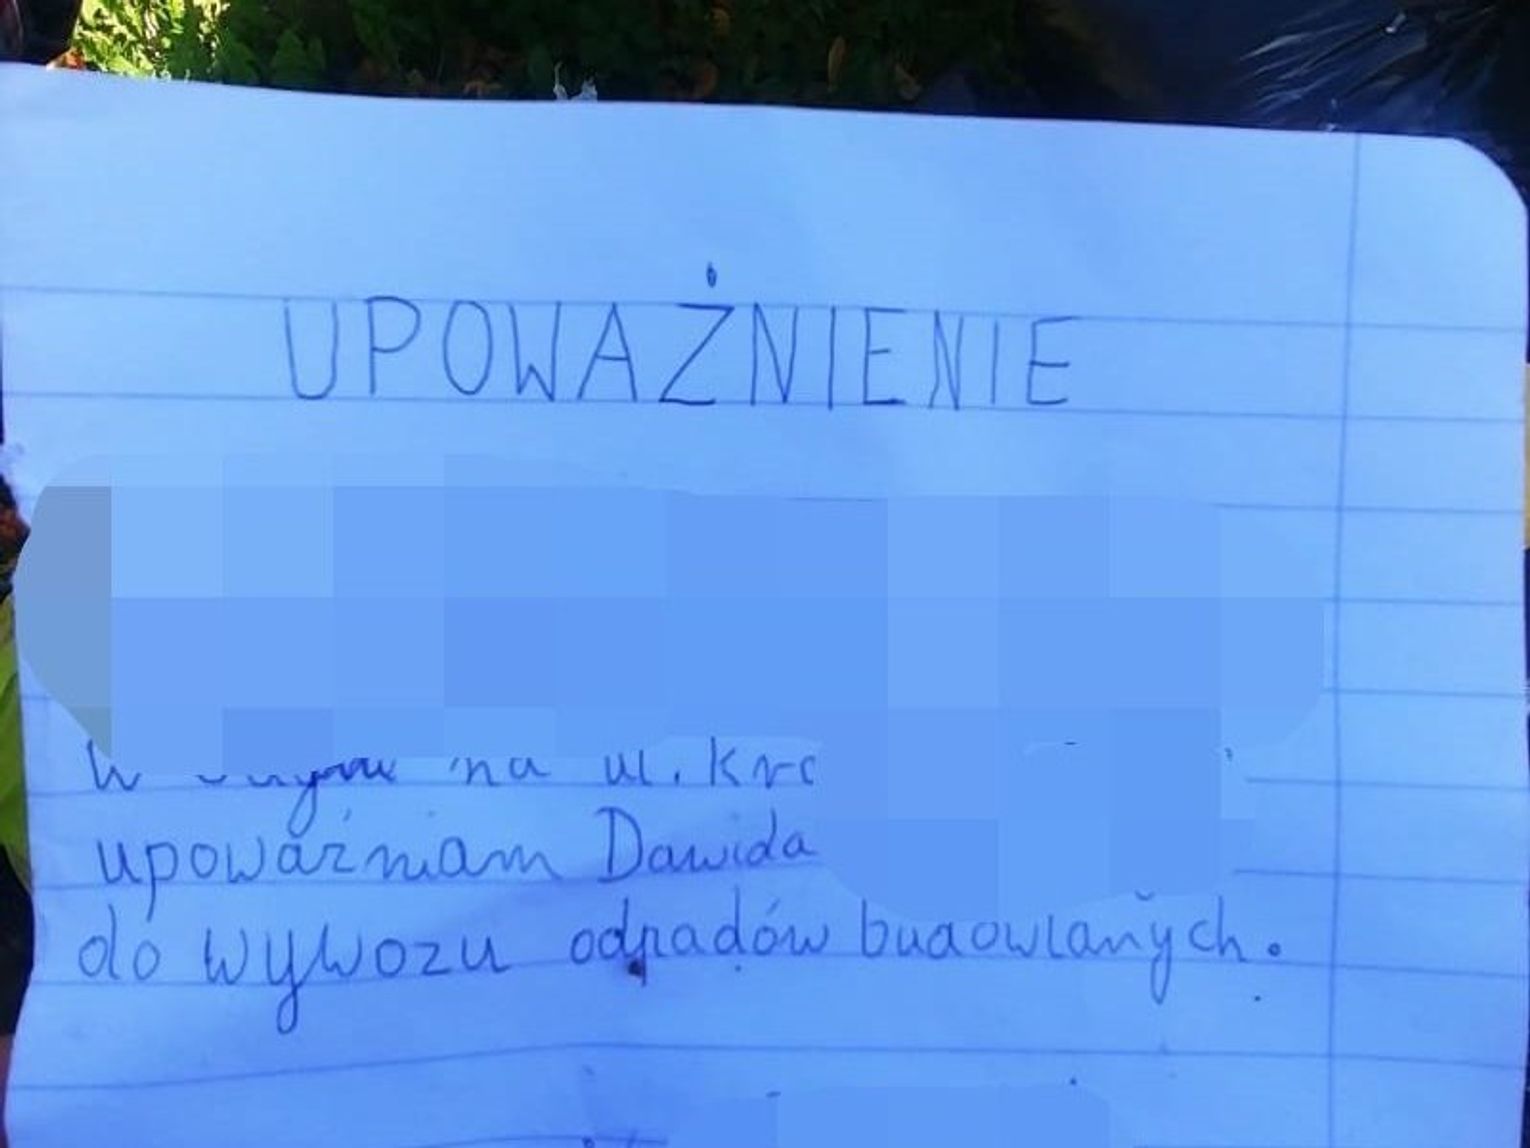 UPOWAŻNIENIE
W na ul. Kro
upoważniam Dawida
do wywozu odpadów budowlanych.